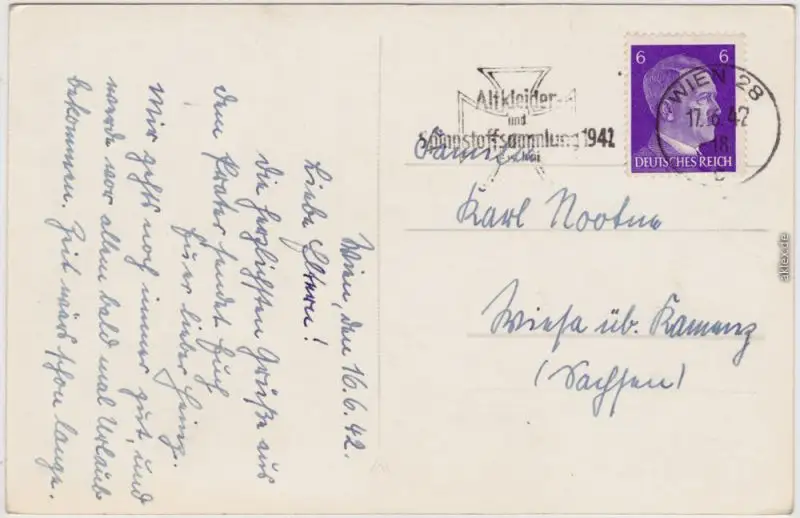 Wien, den 16.6.42.
Liebe Eltern!
Die herzlichsten Grüße aus
dem Prater sendet Euch
Euer lieber Heinz.
Mir gehts noch immer gut, und
werde vor allem bald mal Urlaub
bekommen. Zeit wärs schon lange.
Altkleider-
und
Spinnstoffsammlung 1942
6 6
DEUTSCHES REICH
WIEN 28
17.6.42
18
Familie
Karl
Wiesa üb. Kamenz
(Sachsen)
aklex.de